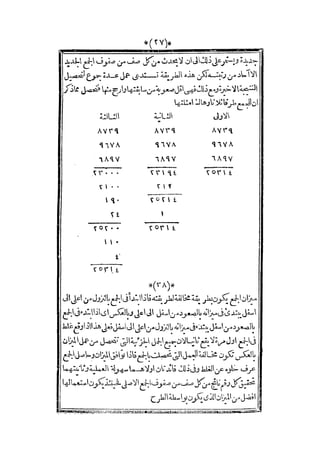 *(٢٧)*
جديدة ويستمر على ذلك الى ان لا يحدث من كل صف من صفوف الجمع الجديد
الا آحاد من رتبته لكن هذه الطريقة تستدعى عمل عدة جموع لتحصيل
النتيجة الاخيرة ومع ذلك فهى اقل صعوبة من سابقتها وارج منها فتحصل مماذكر
ان للجمع طرقا ثلاثا وهاك امثلتها
الاولى الثانية الثالثة
٨٧٣٩ ٨٧٣٩ ٨٧٣٩
٩٦٧٨ ٩٦٧٨ ٩٦٧٨
٦٨٩٧ ٦٨٩٧ ٦٨٩٧
٢٥٣١٤ ٢٣١٩٤ ٢٣٠٠٠
٢١٢ ٢١٠٠
٢٥٢١٤ ١٩٠
١ ٢٤
٢٥٣١٤ ٢٥٢٠٠
١١٠
٤
٢٥٣١٤
*(٣٨)*
ميزان الجمع يكون بطريقة مخالفة لطريقته فاذا ابتدأ فى الجمع بالنزول من اعلى الى
اسفل يبتدئ فى ميزانه بالصعود من اسفل الى اعلى وبالعكس اى اذا ابتدئ فى الجمع
بالصعود من اسفل يبتدئ فى ميزانه بالنزول من اعلى الى اسفل فعلى هذا اذا وقع غلط
فى الجمع اول مرة لا يقع ثانيا لان جميع الجمل الجزئية التى تتحصل من عمل الميزان
بالعكس تكون مخالفة للجمل التى تحصلت بالجمع فاذا توافق الميزان وحاصل الجمع
عرف خلوه عن الغلط وفى ذلك فائدتان اولاهما سهولة العملية وثانيتهما
تحقيق كل رقم ناتج من كل صف من صفوف الجمع الاصلى فحينئذ يكون استعمالها
افضل من الميزان الذى يكون بواسطة الطرح